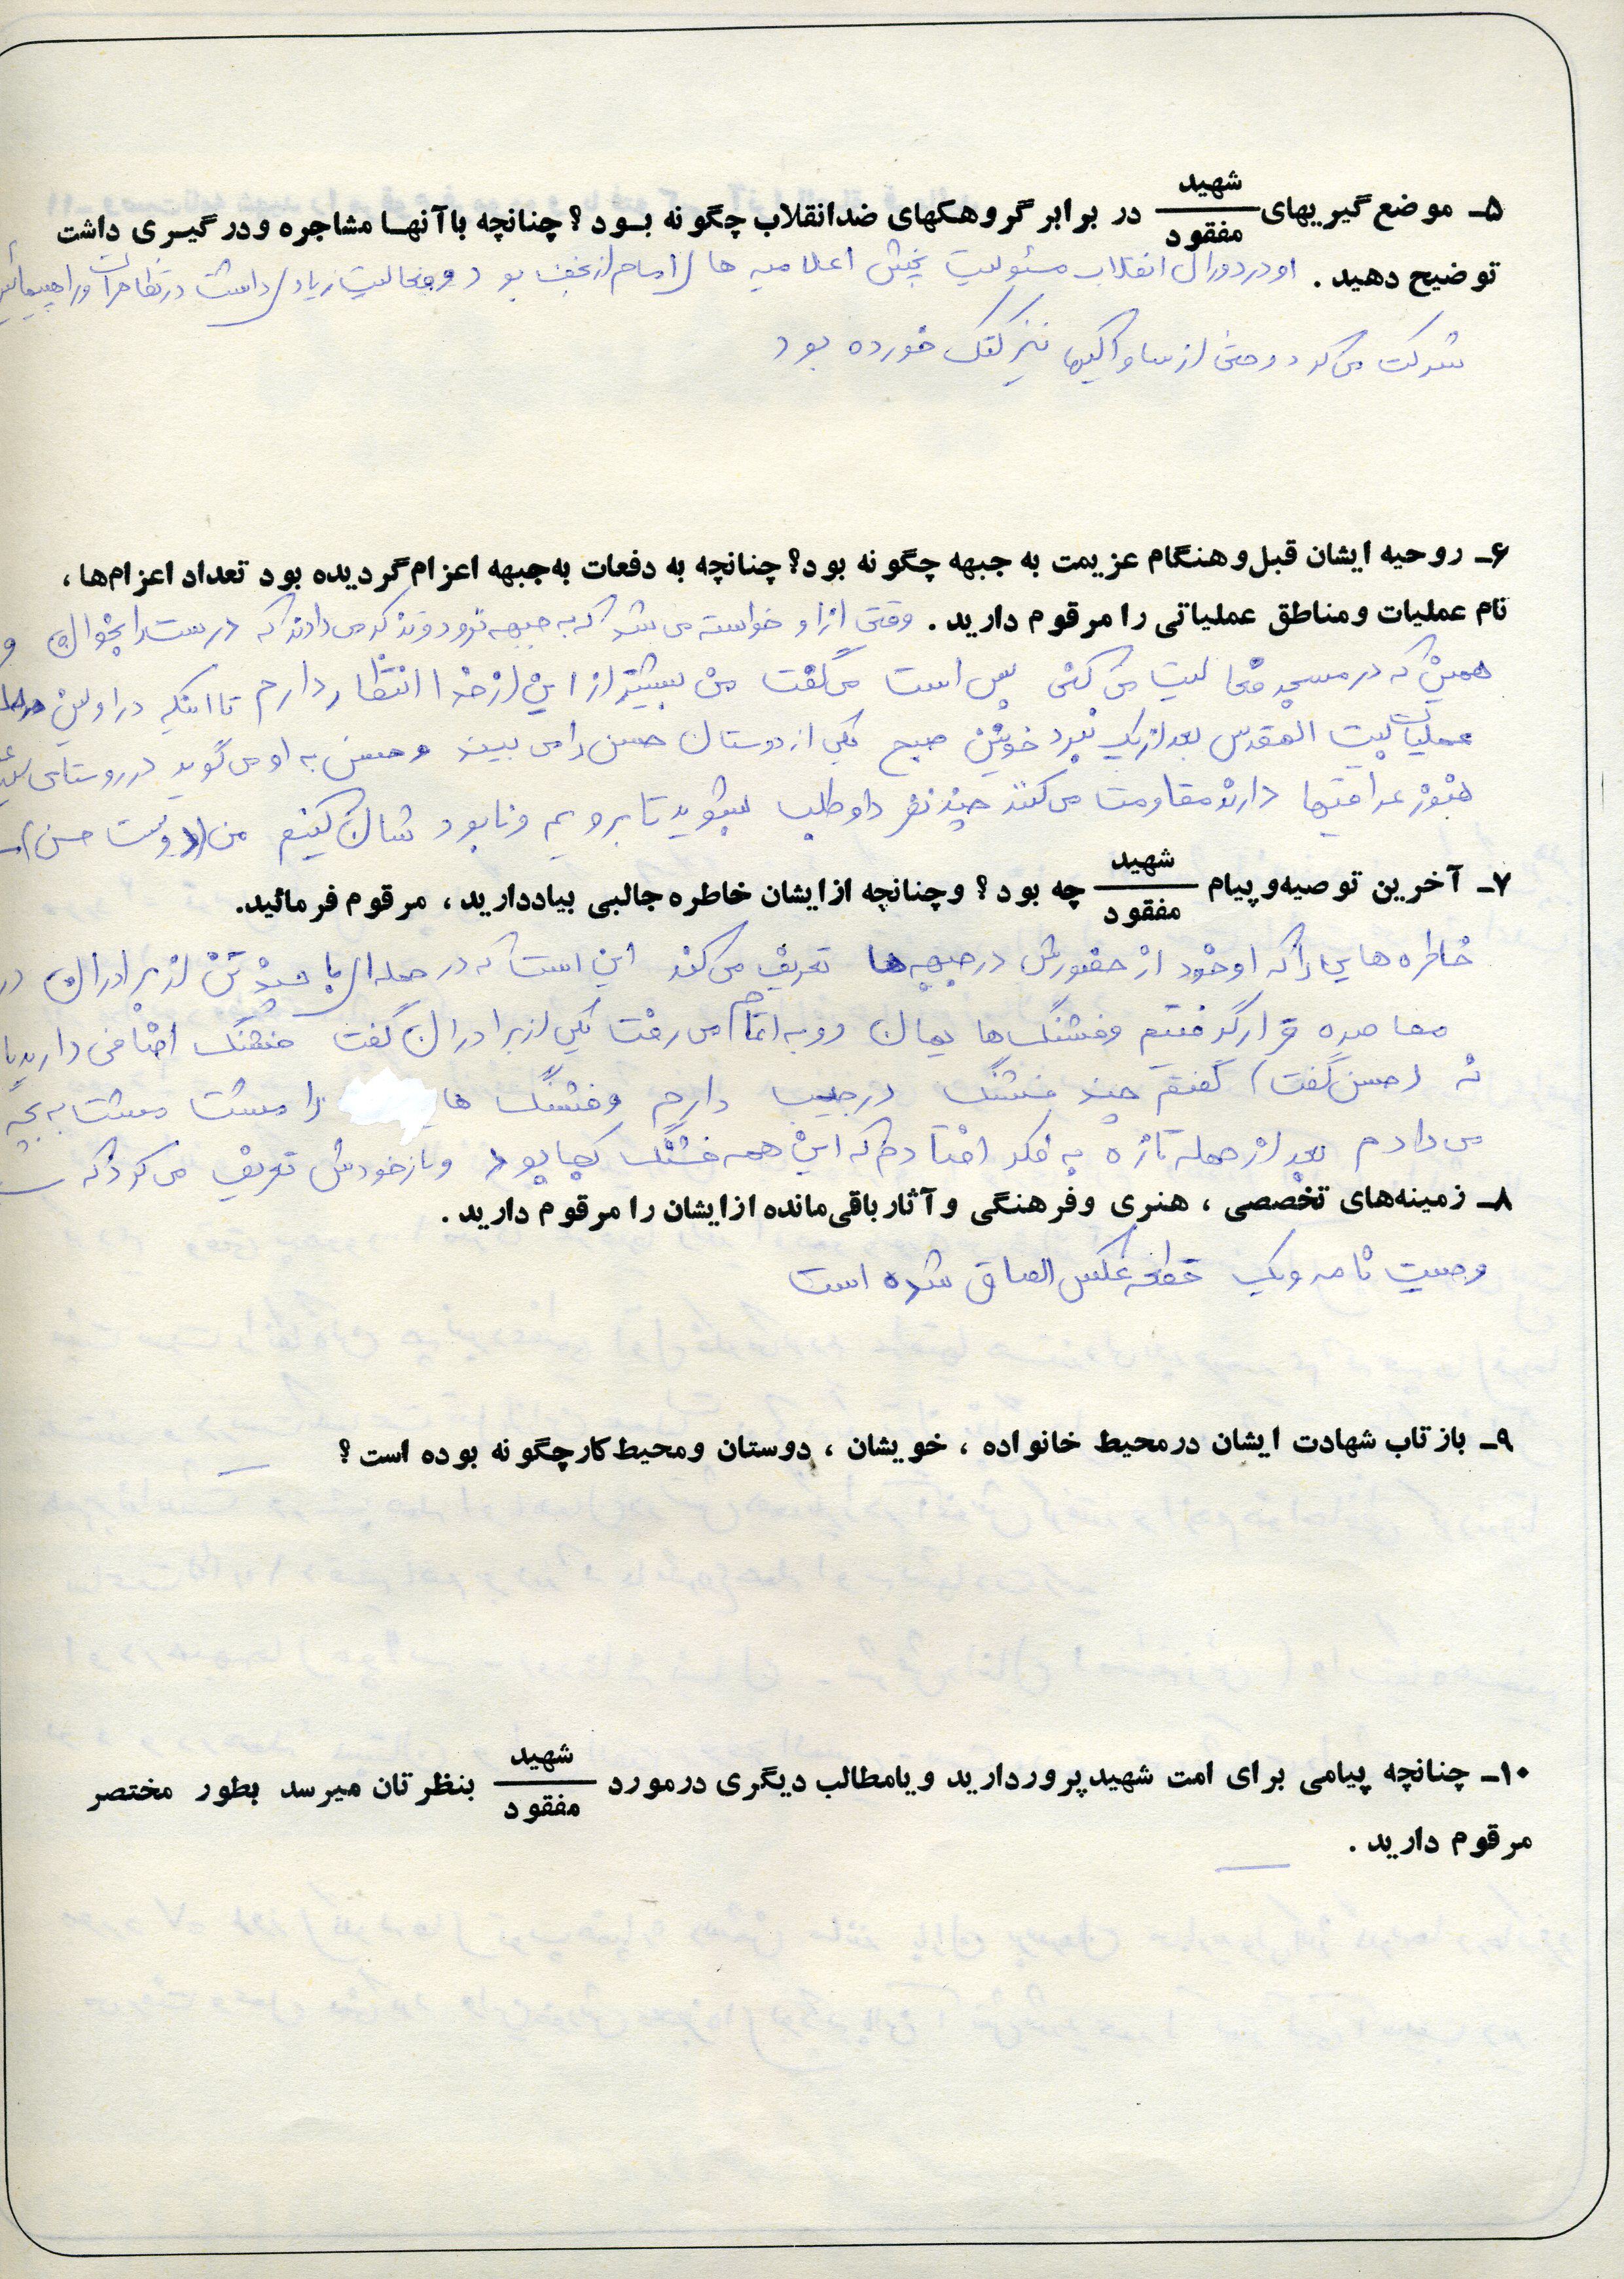 ۵ـ موضع گیریهای شهید/مفقود در برابر گروهکهای ضدانقلاب چگونه بود؟ چنانچه با آنها مشاجره و درگیری داشت
توضیح دهید. او در دوران انقلاب مسئولیت پخش اعلامیه های امام از نجف بود و فعالیت زیادی داشت در تظاهرات و راهپیمائی
شرکت می کرد و حتی از ساواکیها نیز کتک خورده بود
۶ـ روحیه ایشان قبل و هنگام عزیمت به جبهه چگونه بود؟ چنانچه به دفعات به جبهه اعزام گردیده بود تعداد اعزام‌ها،
نام عملیات و مناطق عملیاتی را مرقوم دارید. وقتی از او خواسته می شد که به جبهه نرود و تذکر می دادند که درست را بخوان و
همین که در مسجد فعالیت می کنی بس است می گفت من بیشتر از این از خدا انتظار دارم تا اینکه در اولین
عملیات بیت المقدس بعد از یک نبرد خونین صبح یکی از دوستان حسن را می بیند و حسن به او می گوید در روستای
هنوز عراقیها دارند مقاومت می کنند چند نفر داوطلب بشوید تا برویم و نابودشان کنیم من (دوست حسن)
۷ـ آخرین توصیه و پیام شهید/مفقود چه بود؟ و چنانچه از ایشان خاطره جالبی بیاد دارید، مرقوم فرمائید.
خاطره هایی را که او خود از حضورش در جبهه ها تعریف می کند این است که در حمله ای با چند تن از برادران در
محاصره قرار گرفتیم و فشنگ ها یمان رو به اتمام می رفت یکی از برادران گفت فشنگ اضافی دارید یا
نه (حسن گفت) گفتم چند فشنگ در جیب دارم و فشنگ های را مشت مشت به بچه
می دادم بعد از حمله تازه به فکر افتادم که این همه فشنگ کجا بود و باز خودش تعریف می کرد که
۸ـ زمینه‌های تخصصی، هنری و فرهنگی و آثار باقی‌مانده از ایشان را مرقوم دارید.
وصیت نامه و یک قطعه عکس الصاق شده است
۹ـ بازتاب شهادت ایشان در محیط خانواده، خویشان، دوستان و محیط کار چگونه بوده است؟
۱۰ـ چنانچه پیامی برای امت شهید پرور دارید و یا مطالب دیگری در مورد شهید/مفقود بنظرتان میرسد بطور مختصر
مرقوم دارید.